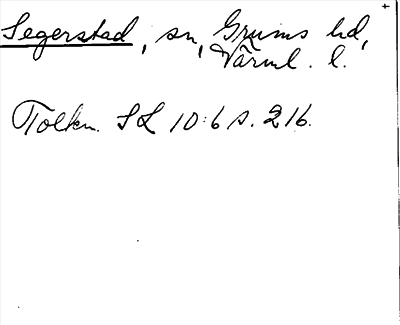 Segerstad, sn, Grums hd,
Värml. l.
Tolkn. SL 10:6 s. 216.